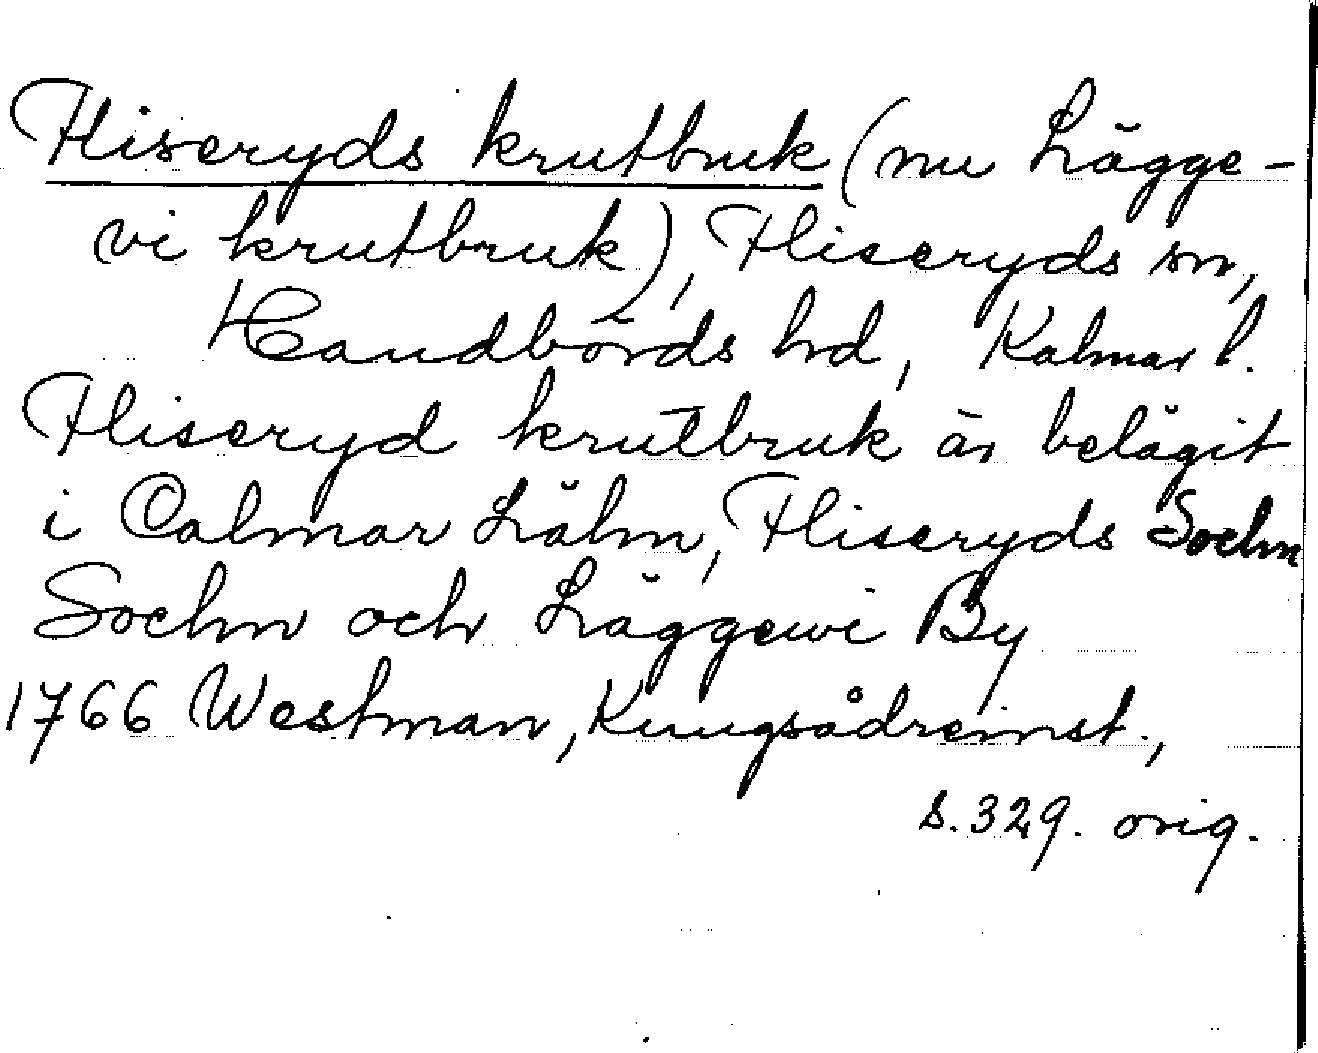 Fliseryds krutbruk (nu Lägge-
vi krutbruk), Fliseryds sn,
Handbörds hd, Kalmar l.
Fliseryd krutbruk är belägit
i Calmar Lähn, Fliseryds Sochn
Sochn och Läggewi By
1766 Westman, Kungsådreinst.,
s. 329. orig.